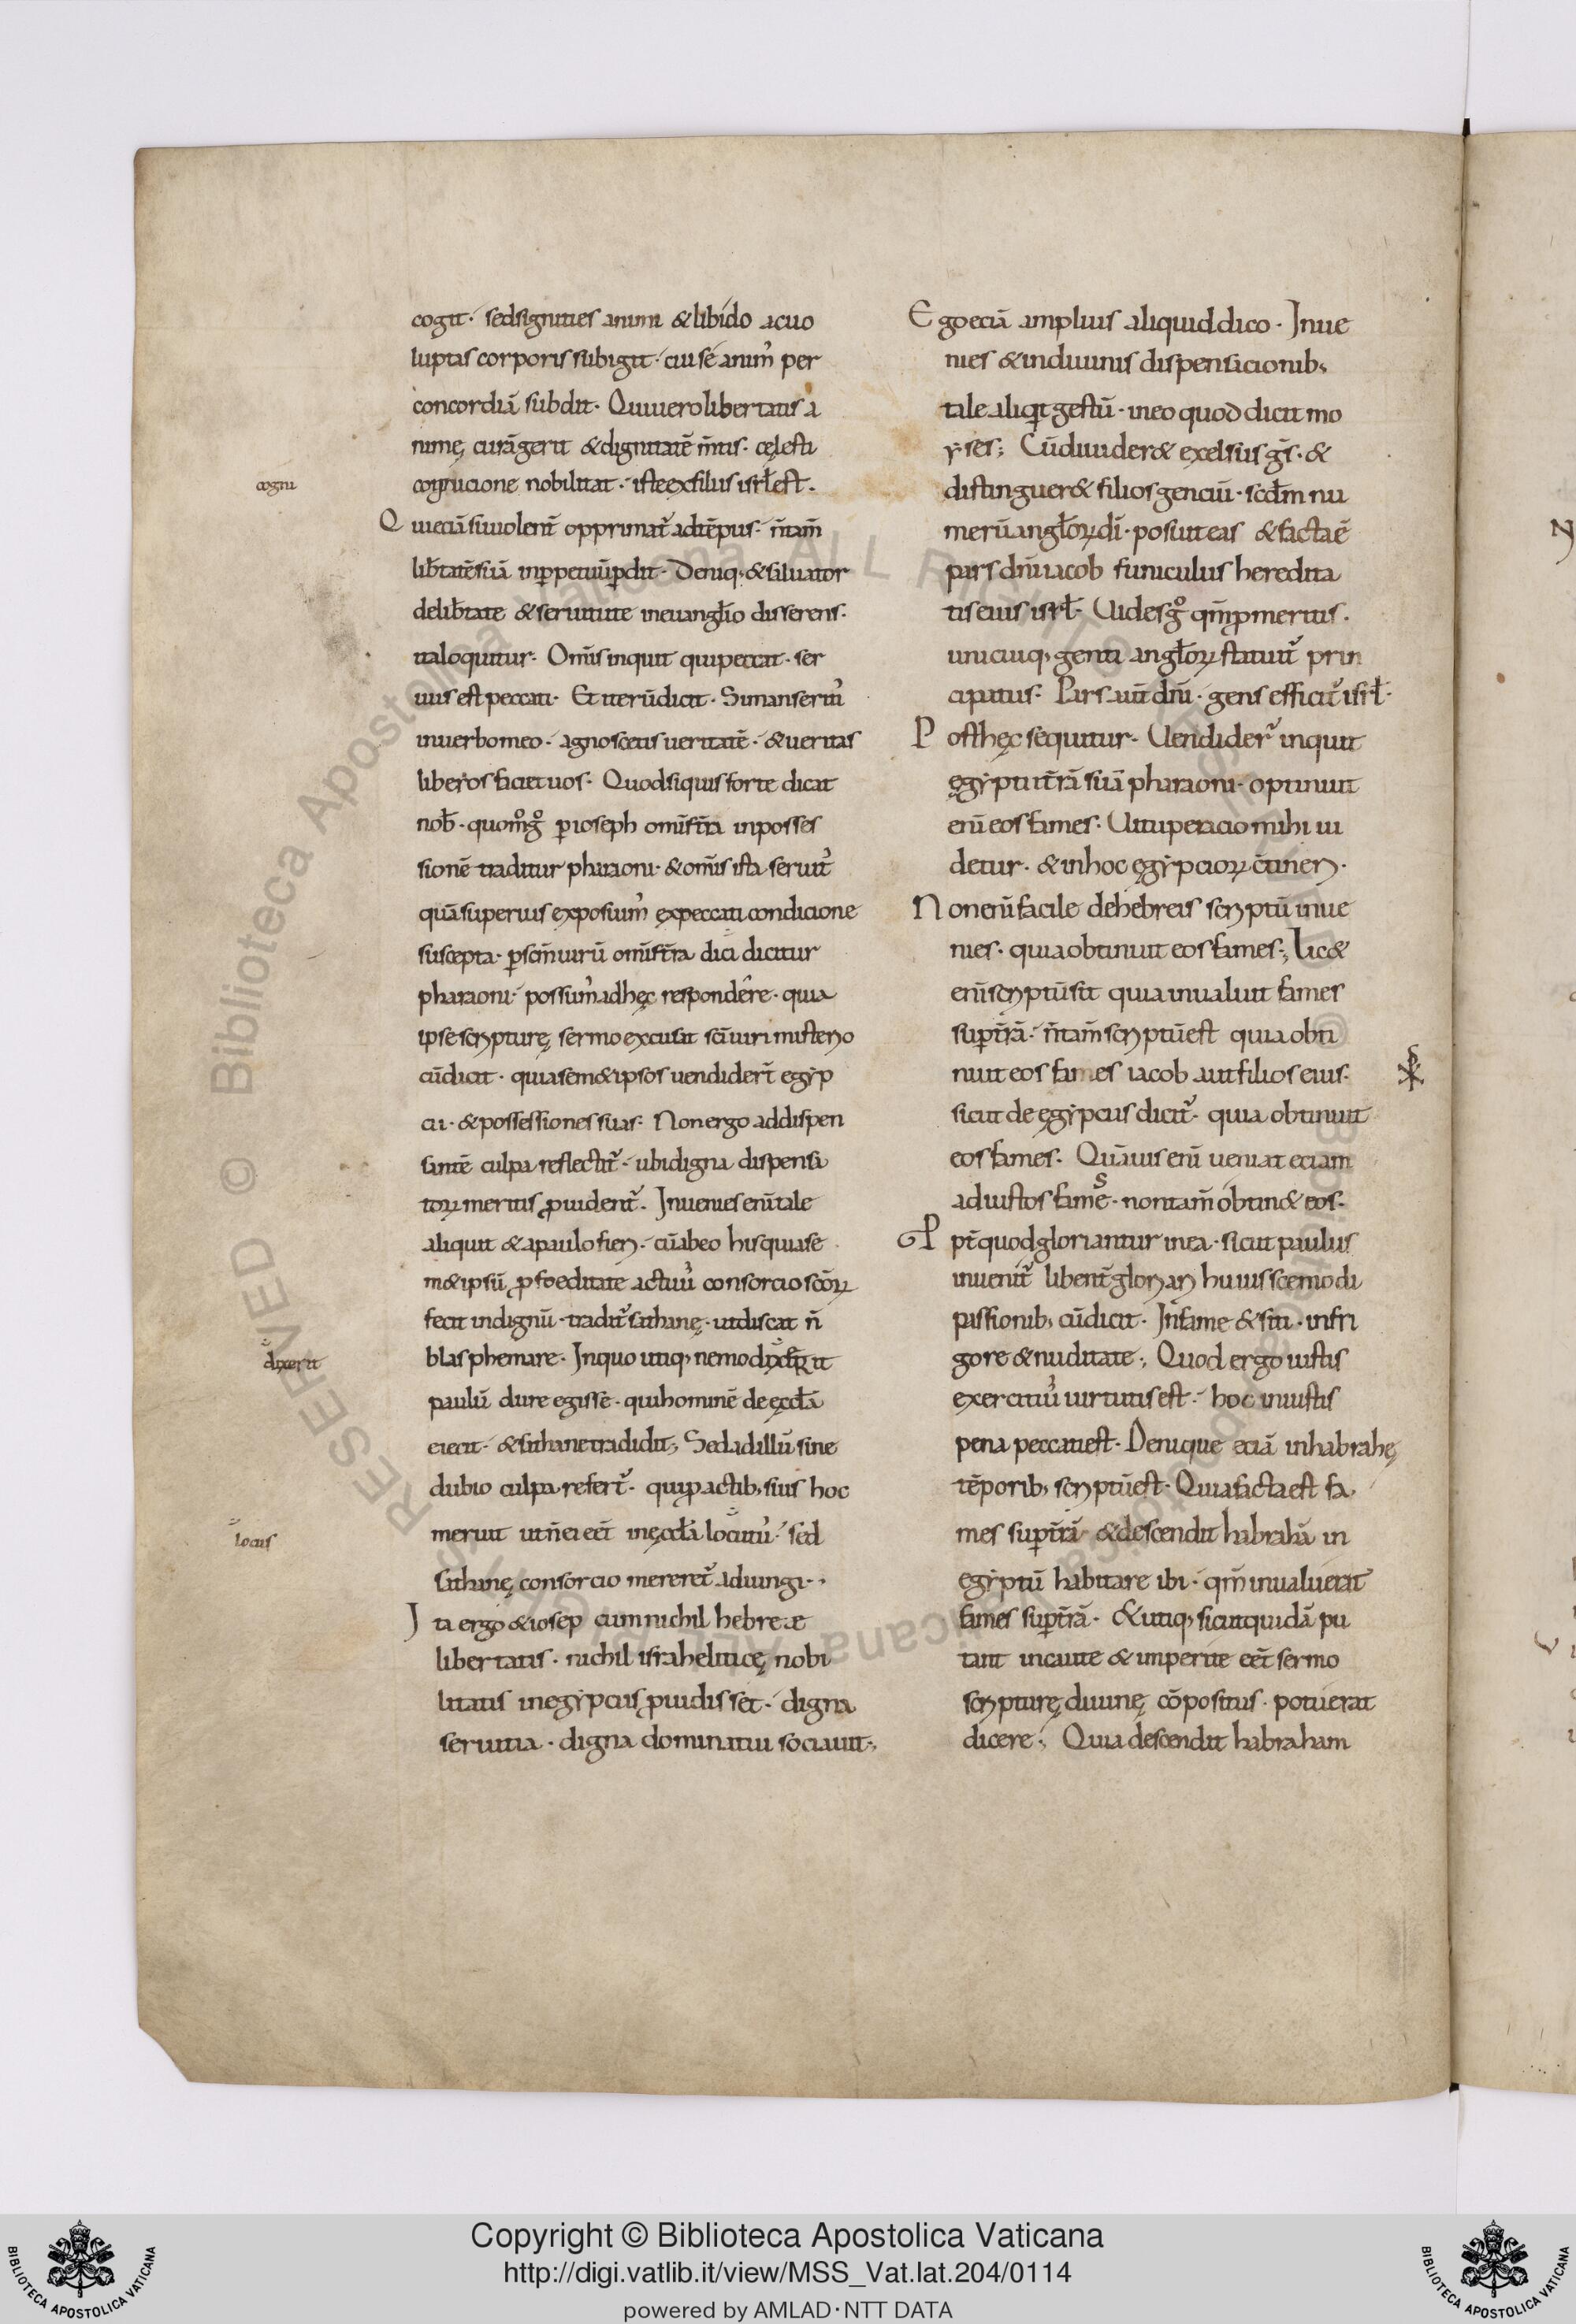 cogit· sedsignities animi &libido acuo
luptas corporis subigit· cui se animꝰ per
concordiā subdit· Quiuero libertatis a
nimę curāgerit &dignitatē m̄tis· cęlesti
cognacione nobilitat· iste exfilius isrł est·
Quieciā siuiolent̄ opprimat̄ adtēpus· n̄ tam̄
lib̄tatēsuā inꝑpetuūꝑdit· Deniq; &saluator
delib̄tate &seruitute ineuangł̄io disserens·
italoquitur· Om̄is inquit quipeccat· ser
uus est peccati· Et iterūdicit· Simanseritꝰ
inuerbomeo· agnoscetis ueritatē· &ueritas
liberosfaciet uos· Quodsiquis forte dicat
nob̄· quom̊g̊ ꝑioseph om̄ist̄ra inposses
sionē traditur pharaoni· &om̄is ista seruit̾
quāsuperius exposuimꝰ expeccati condicione
suscepta· ꝑsc̄m uirū om̄ist̄ra dici dicitur
pharaoni· possumꝰadhęc respondere· quia
ipse scripturę sermo excusat sc̄i uiri misterio
cūdicit· quiasem&ipsos uendidert̄ egyp
cii· &possessiones suas· Non ergo addispen
santē culpa reflectit̾· ubidigna dispensa
toꝝ meritis ꝓuident̾· Inuenies enītale
aliquit &apaulo fieri· cūabeo hisquiase
m&ipsū ꝓfoeditate actuū consorcio sc̄oꝝ
fecit indignū· tradit̾ sathanę· utdiscat n̄
blasphemare· Inquo utiq; nemodixerit
paulū dure egisse· quihominē de ęccłā
eiecit· &sathanetradidit; Sedadillū sine
dubio culpa refert̾· quiꝓactib; suis hoc
meruit utn̄ei eēt inęccłā locutꝰ· sed
sathanę consorcio mereret̾ adiungi·,
Ita ergo &iosep cumnichil hebreæ
libertatis· nichil israheliticę nobi
litatis inegypciis ꝓuidisset· digna
seruitia· digna dominatui sociauit·,
cogni
dixerit
locus
Egoeciā amplius aliquiddico· Inue
nies &indiuinis dispensacionib;
tale aliqit gestū· ineo quod dicit mo
yses; Cūdiuider& exelsus gs̄· &
distinguer& filios genciū· scd̄m nu
merū angłoꝝ dī· posuit eas &factaē
pars dn̄i iacob funiculus heredita
tis eius isrł· Uides g̊ qm̄ꝓmeritis·
unicuiq; genti angłoꝝ statuit̾ prin
cipatus· Pars aut̄ dn̄i· gens efficit̾ isrł·
Posthęc sequitur· Uendider̾ inquit
ęgyptii t̄rā suā pharaoni· optinuit
enī eos fames· Uituperacio mihi ui
detur· &inhoc ęgypcioꝝ c̄tineri·
Nonenī facile dehebreis scriptū inue
nies· quia obtinuit eos fames; Lic&
enī scriptūsit quia inualuit fames
suꝑt̄rā· n̄ tam̄ scriptū est quia obti
nuit eos fames iacob aut filios eius·
sicut de ęgypciis dicit̾· quia obtinuit
eos fames· Quāuis enī ueniat eciam
adiustos fames· nontam̄ obtin& eos·
Ppt̄ quodgloriantur inea· sicut paulus
inuenit̾ libent̄ gloriari huiuscemodi
passionib; cūdicit· In fame &siti· infri
gore &nuditate; Quod ergo iustis
exercitiū uirtutis est· hoc iniustis
pena peccati est· Denique eciā inhabrahę
tēporib; scriptū est· Quiafacta est fa
mes suꝑt̄rā &descendit habrahā in
egyptū habitare ibi· qm̄ inualuerat
fames suꝑt̄rā· &utiq; sicutquidā pu
tant incaute &imperite eēt sermo
scripturę diuinę cōpositus· potuerat
dicere; Quia descendit habraham
Copyright © Biblioteca Apostolica Vaticana
http://digi.vatlib.it/view/MSS_Vat.lat.204/0114
powered by AMLAD·NTT DATA
BIBLIOTECA APOSTOLICA VATICANA
BIBLIOTECA APOSTOLICA VATICANA